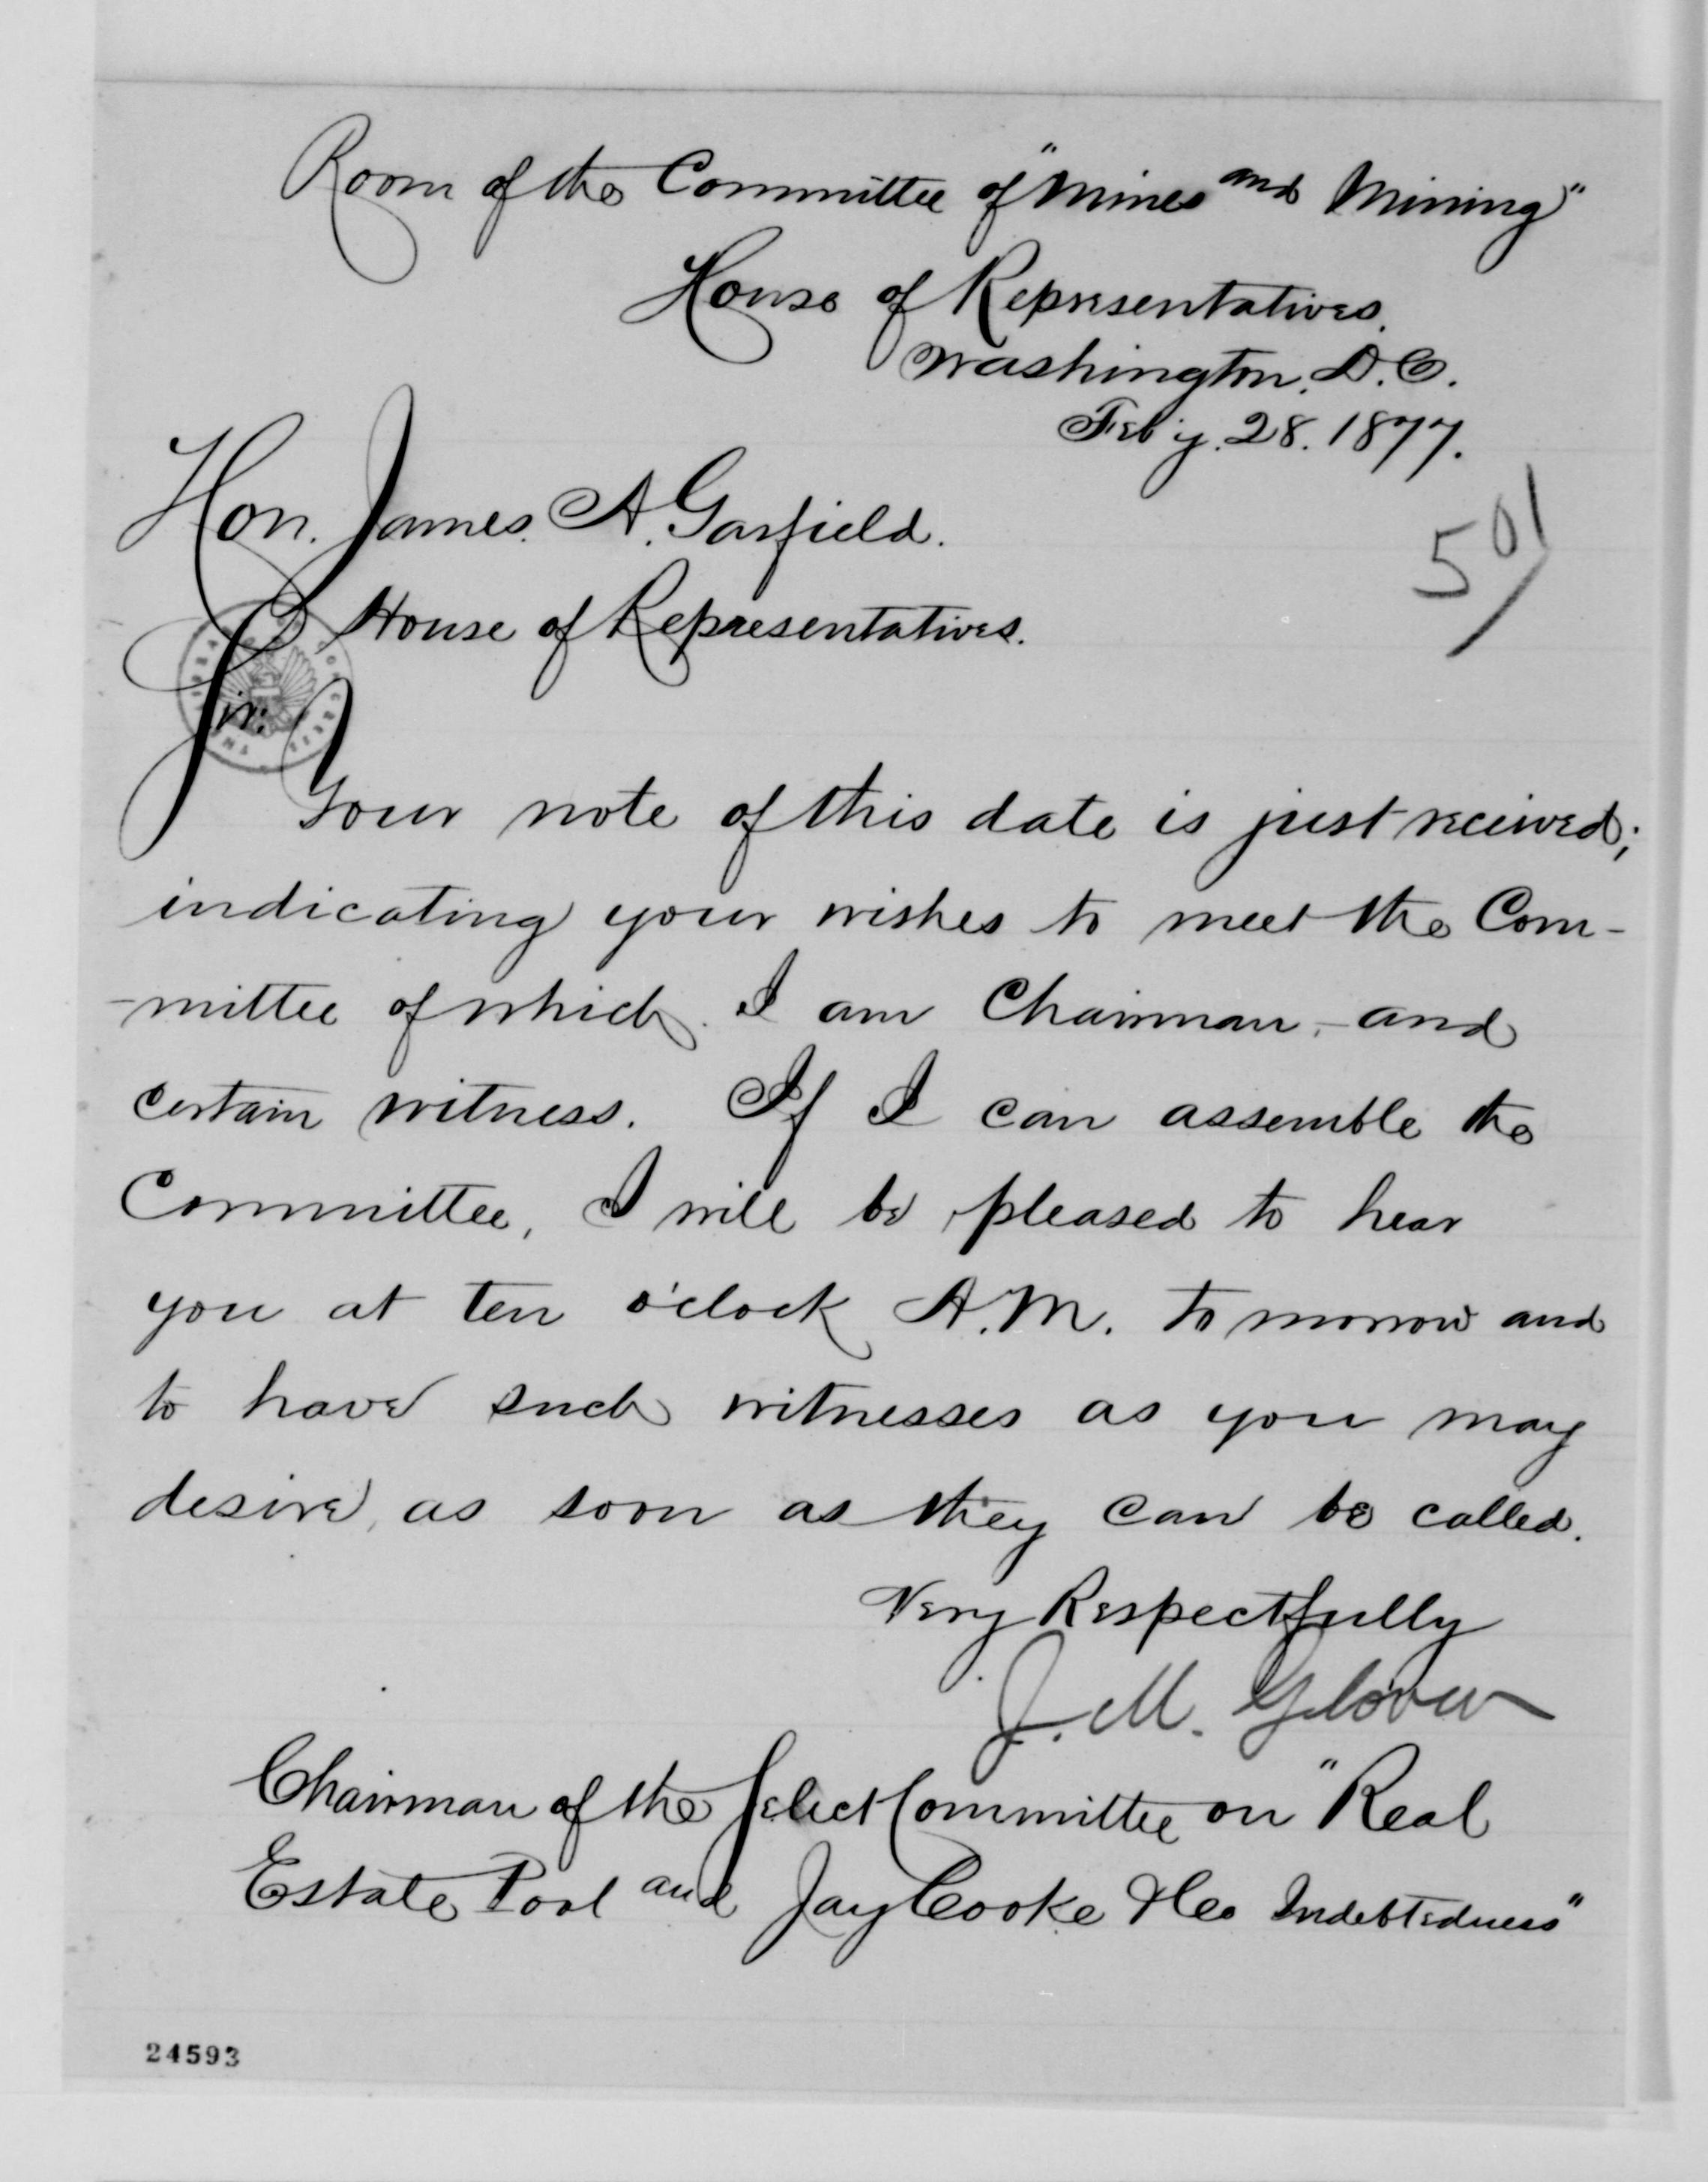 Room of the Committee of "Mines and Mining"
House of Representatives.
Washington, D.C.
Feb'y. 28. 1877.
501
Hon. James. A. Garfield.
House of Representatives.
Sir:
Your note of this date is just received;
indicating your wishes to meet the Com-
-mittee of which I am Chairman, and
certain witness. If I can assemble the
Committee, I will be pleased to hear
you at ten o'clock A.M. to morrow and
to have such witnesses as you may
desire, as soon as they can be called.
Very Respectfully
J. M. Glover
Chairman of the Select Committee on "Real
Estate Pool and Jay Cooke & Co Indebtedness"
24593